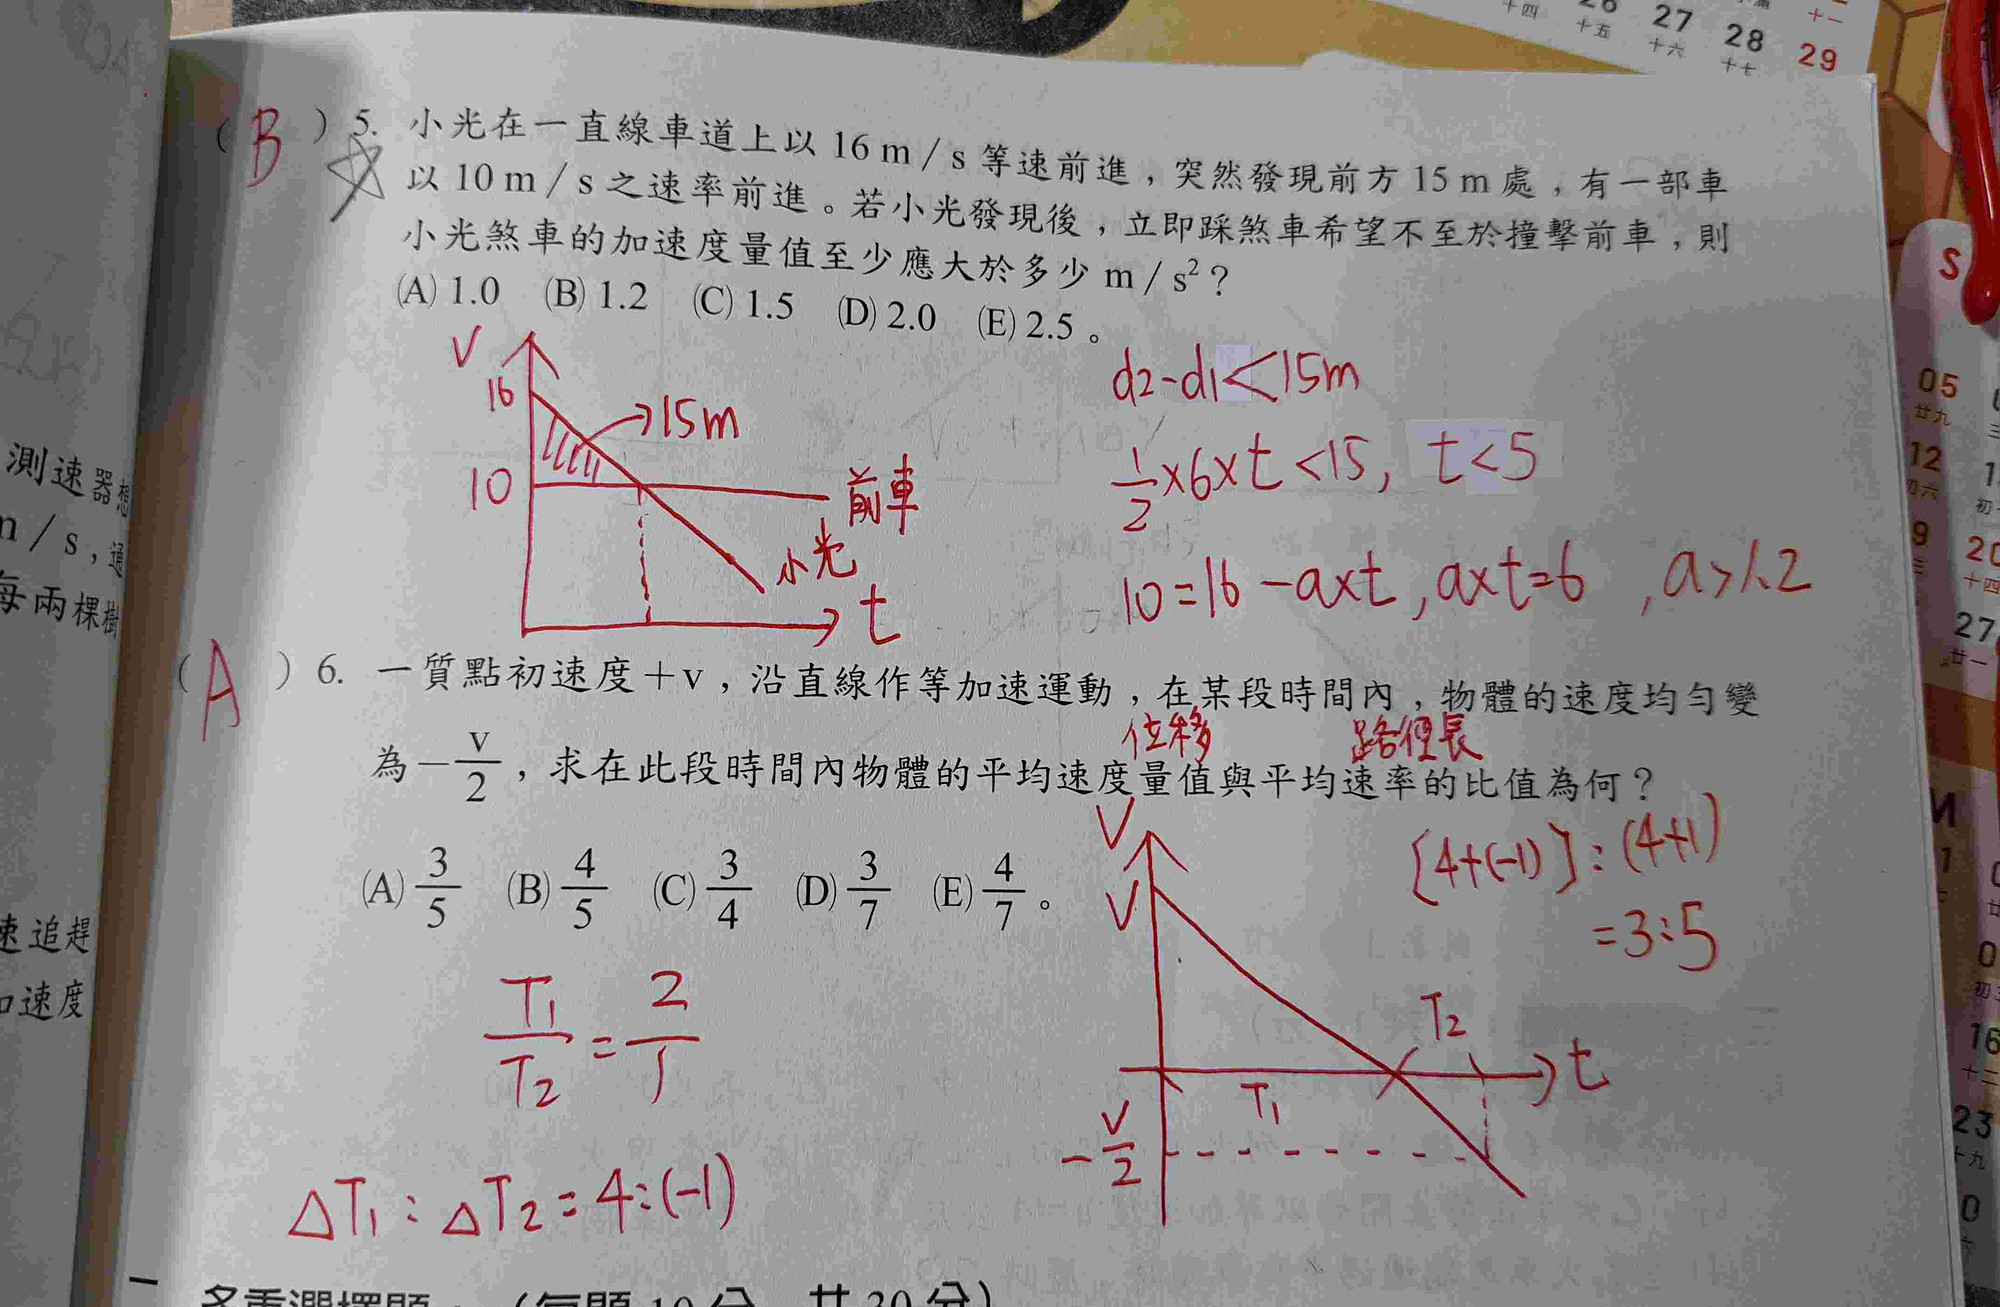 26 27 28 29
十四 十五 十六 十七 十一
( B ) 5. 小光在一直線車道上以 16 m / s 等速前進，突然發現前方 15 m 處，有一部車
以 10 m / s 之速率前進。若小光發現後，立即踩煞車希望不至於撞擊前車，則
小光煞車的加速度量值至少應大於多少 m / s² ?
(A) 1.0 (B) 1.2 (C) 1.5 (D) 2.0 (E) 2.5 。
V
16
→15m
10
前車
小光
t
d2-d1<15m
1/2×6×t<15, t<5
10=16-a×t, a×t=6 , a>1.2
( A ) 6. 一質點初速度＋v，沿直線作等加速運動，在某段時間內，物體的速度均勻變
位移 路徑長
為－v/2，求在此段時間內物體的平均速度量值與平均速率的比值為何？
(A) 3/5 (B) 4/5 (C) 3/4 (D) 3/7 (E) 4/7 。
[4+(-1)]:(4+1)
=3:5
V
V
T2
t
T1
-V/2
T1/T2=2/1
△T1:△T2=4:(-1)
測速器
m / s，通
每兩棵樹
速追趕
加速度
S
05
廿九
12
初六
9
20
十四
27
廿一
M
16
十二
23
十九